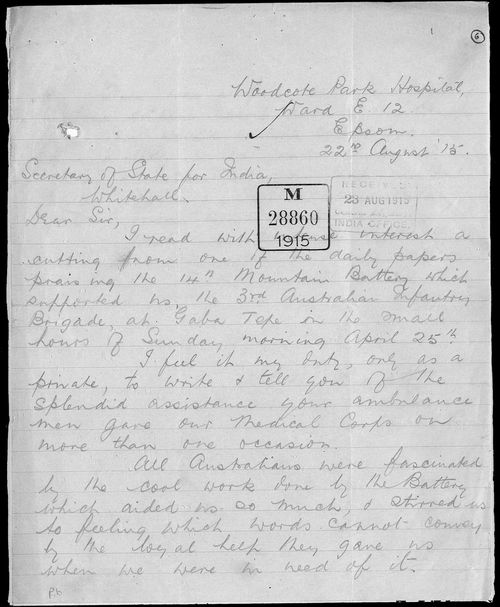 6
Woodcote Park Hospital,
Ward E. 12
Epsom.
22nd August '15.
Secretary of State for India,
Whitehall.
M
28860
1915
RECEIVED
23 AUG 1915
INDIA OFFICE
Dear Sir,
I read with intense interest a
cutting from one of the daily papers
praising the 14th Mountain Battery which
supported us, the 3rd Australian Infantry
Brigade, at Gaba Tepe in the small
hours of Sunday morning April 25th
I feel it my duty, only as a
private, to write & tell you of the
splendid assistance your ambulance
men gave our Medical Corps on
more than one occasion.
All Australians were fascinated
by the cool work done by the Battery
which aided us so much, & stirred us
to feeling which words cannot convey
by the loyal help they gave us
when we were in need of it.
P.6